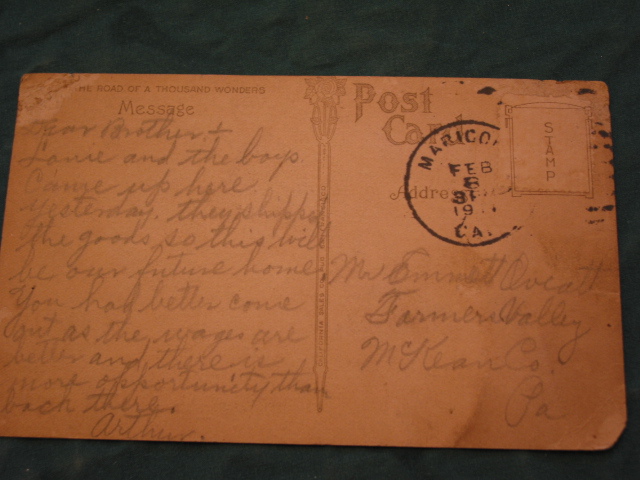 THE ROAD OF A THOUSAND WONDERS
Message
Dear Brother +
and the boys
Came up here
yesterday. they shipped
the goods so this will
be our future home
You had better come
out as the wages are
better and there is
more opportunity than
back there.
Arthur.
Post
Card
STAMP
MARICO
FEB
6
19
CA.
Address
Mr Emmett Oviatt
Farmers Valley
McKean Co.
Pa